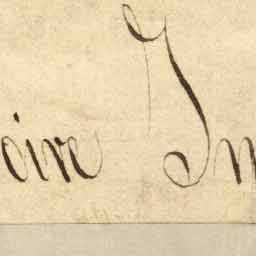 oire Im